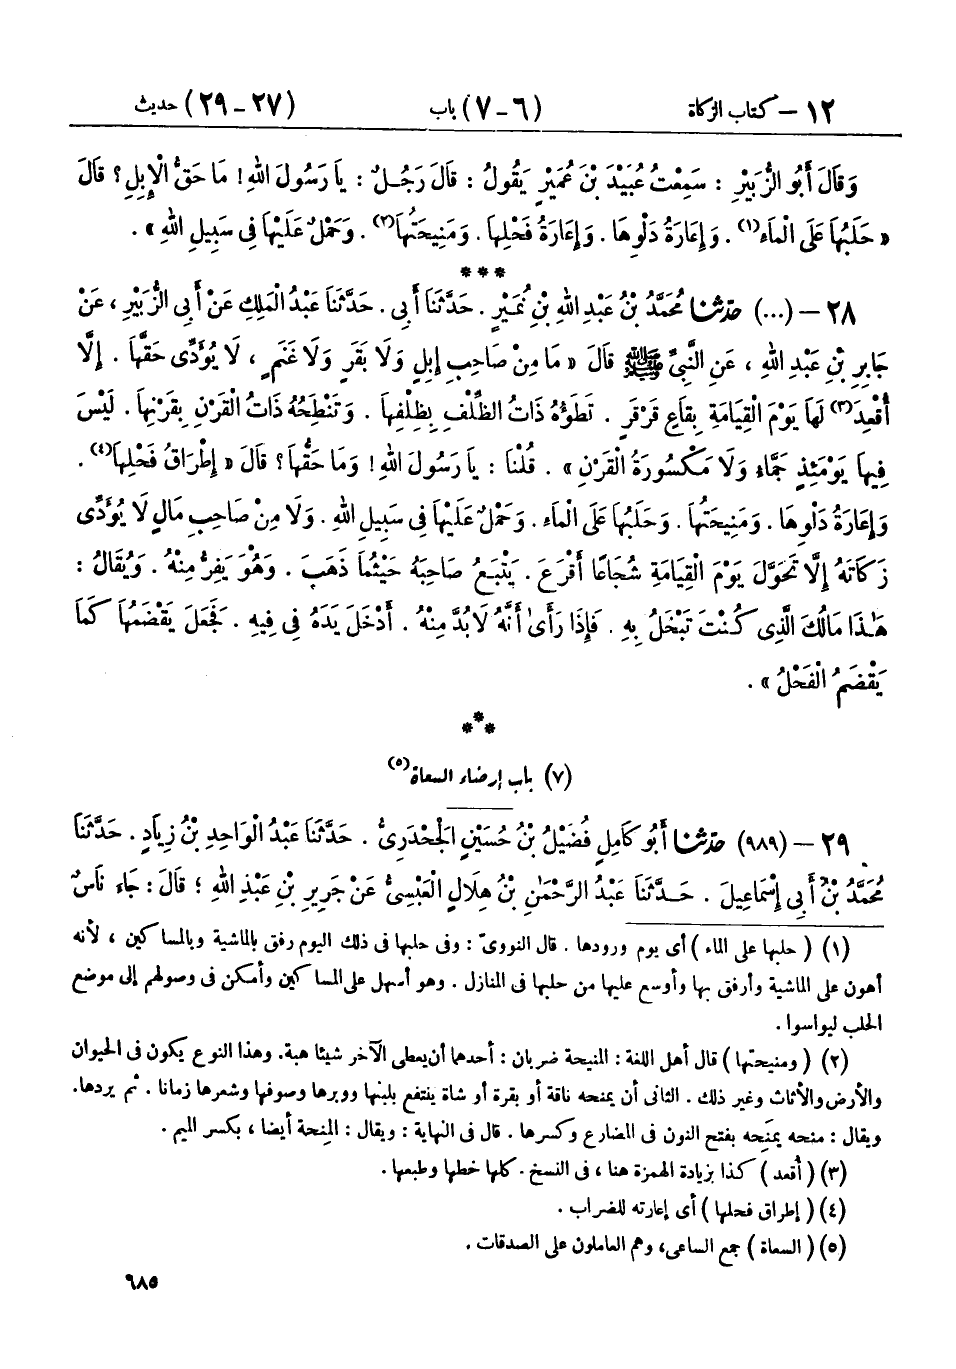 ١٢ – كتاب الزكاة (٦ – ٧) باب (٢٧ – ٢٩) حديث
وَقَالَ أَبُو الزُّبَيْرِ : سَمِعْتُ عُبَيْدَ بْنَ عُمَيْرٍ يَقُولُ : قَالَ رَجُلٌ : يَا رَسُولَ اللهِ! مَا حَقُّ الْإِبِلِ؟ قَالَ
« حَلَبُهَا عَلَى الْمَاءِ(١) . وَإِعَارَةُ دَلْوِهَا . وَإِعَارَةُ فَحْلِهَا . وَمَنِيحَتُهَا(٢) . وَحَمْلٌ عَلَيْهَا فِي سَبِيلِ اللهِ » .
***
٢٨ – (...) حدثنا مُحَمَّدُ بْنُ عَبْدِ اللهِ بْنِ نُمَيْرٍ . حَدَّثَنَا أَبِي . حَدَّثَنَا عَبْدُ الْمَلِكِ عَنْ أَبِي الزُّبَيْرِ ، عَنْ
جَابِرِ بْنِ عَبْدِ اللهِ ، عَنِ النَّبِيِّ ﷺ قَالَ « مَا مِنْ صَاحِبِ إِبِلٍ وَلَا بَقَرٍ وَلَا غَنَمٍ ، لَا يُؤَدِّى حَقَّهَا . إِلَّا
أُقْعِدَ(٣) لَهَا يَوْمَ الْقِيَامَةِ بِقَاعٍ قَرْقَرٍ . تَطَؤُهُ ذَاتُ الظِّلْفِ بِظِلْفِهَا . وَتَنْطَحُهُ ذَاتُ الْقَرْنِ بِقَرْنِهَا . لَيْسَ
فِيهَا يَوْمَئِذٍ جَمَّاءُ وَلَا مَكْسُورَةُ الْقَرْنِ » . قُلْنَا : يَا رَسُولَ اللهِ! وَمَا حَقُّهَا؟ قَالَ « إِطْرَاقُ فَحْلِهَا(٤) .
وَإِعَارَةُ دَلْوِهَا . وَمَنِيحَتُهَا . وَحَلَبُهَا عَلَى الْمَاءِ . وَحَمْلٌ عَلَيْهَا فِي سَبِيلِ اللهِ . وَلَا مِنْ صَاحِبِ مَالٍ لَا يُؤَدِّى
زَكَاتَهُ إِلَّا تَحَوَّلَ يَوْمَ الْقِيَامَةِ شُجَاعًا أَقْرَعَ . يَتْبَعُ صَاحِبَهُ حَيْثُمَا ذَهَبَ . وَهُوَ يَفِرُّ مِنْهُ . وَيُقَالُ :
هَٰذَا مَالُكَ الَّذِى كُنْتَ تَبْخَلُ بِهِ . فَإِذَا رَأَىٰ أَنَّهُ لَا بُدَّ مِنْهُ . أَدْخَلَ يَدَهُ فِي فِيهِ . فَجَعَلَ يَقْضَمُهَا كَمَا
يَقْضَمُ الْفَحْلُ » .
***
(٧) باب إرضاء السعاة(٥)
٢٩ – (٩٨٩) حدثنا أَبُو كَامِلٍ فُضَيْلُ بْنُ حُسَيْنٍ الْجَحْدَرِيُّ . حَدَّثَنَا عَبْدُ الْوَاحِدِ بْنُ زِيَادٍ . حَدَّثَنَا
مُحَمَّدُ بْنُ أَبِي إِسْمَاعِيلَ . حَدَّثَنَا عَبْدُ الرَّحْمَٰنِ بْنُ هِلَالٍ الْعَبْسِيُّ عَنْ جَرِيرِ بْنِ عَبْدِ اللهِ ؛ قَالَ : جَاءَ نَاسٌ
(١) ( حلبها على الماء ) أى يوم ورودها . قال النووىّ : وفى حلبها فى ذلك اليوم رفق بالماشية وبالمساكين ، لأنه
أهون على الماشية وأرفق بها وأوسع عليها من حلبها فى المنازل . وهو أسهل على المساكين وأمكن فى وصولهم إلى موضع
الحلب ليواسوا .
(٢) ( ومنيحتها ) قال أهل اللغة : المنيحة ضربان : أحدها أن يعطى الآخر شيئا هبة. وهذا النوع يكون فى الحيوان
والأرض والأثاث وغير ذلك . الثانى أن يمنحه ناقة أو بقرة أو شاة ينتفع بلبنها ووبرها وصوفها وشعرها زمانا . ثم يردها.
ويقال : منحه يمنَحِه بفتح النون فى المضارع وكسرها . قال فى النهاية : ويقال : المِنحة أيضا ، بكسر الميم .
(٣) ( أُقعد ) كذا بزيادة الهمزة هنا ، فى النسخ . كلها خطها وطبعها .
(٤) ( إطراق فحلها ) أى إعارته للضراب .
(٥) ( السعاة ) جمع الساعى، وهم العاملون على الصدقات .
٦٨٥